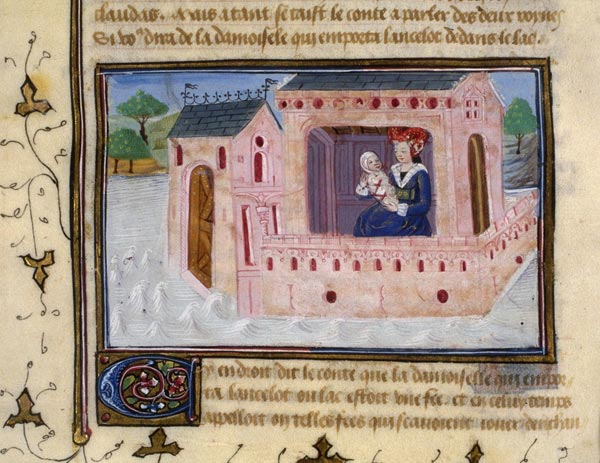 claudas. Mais atant se taist le conte a parler des deux
Si vo9 dira de la damoisele qui emporta lancelot dedans le lac.
Cy en droit dit le conte que la damoiselle qui empor
ta lancelot ou lac estoit une fee. et en celluy temps
appelloit on telles fees qui scavoient